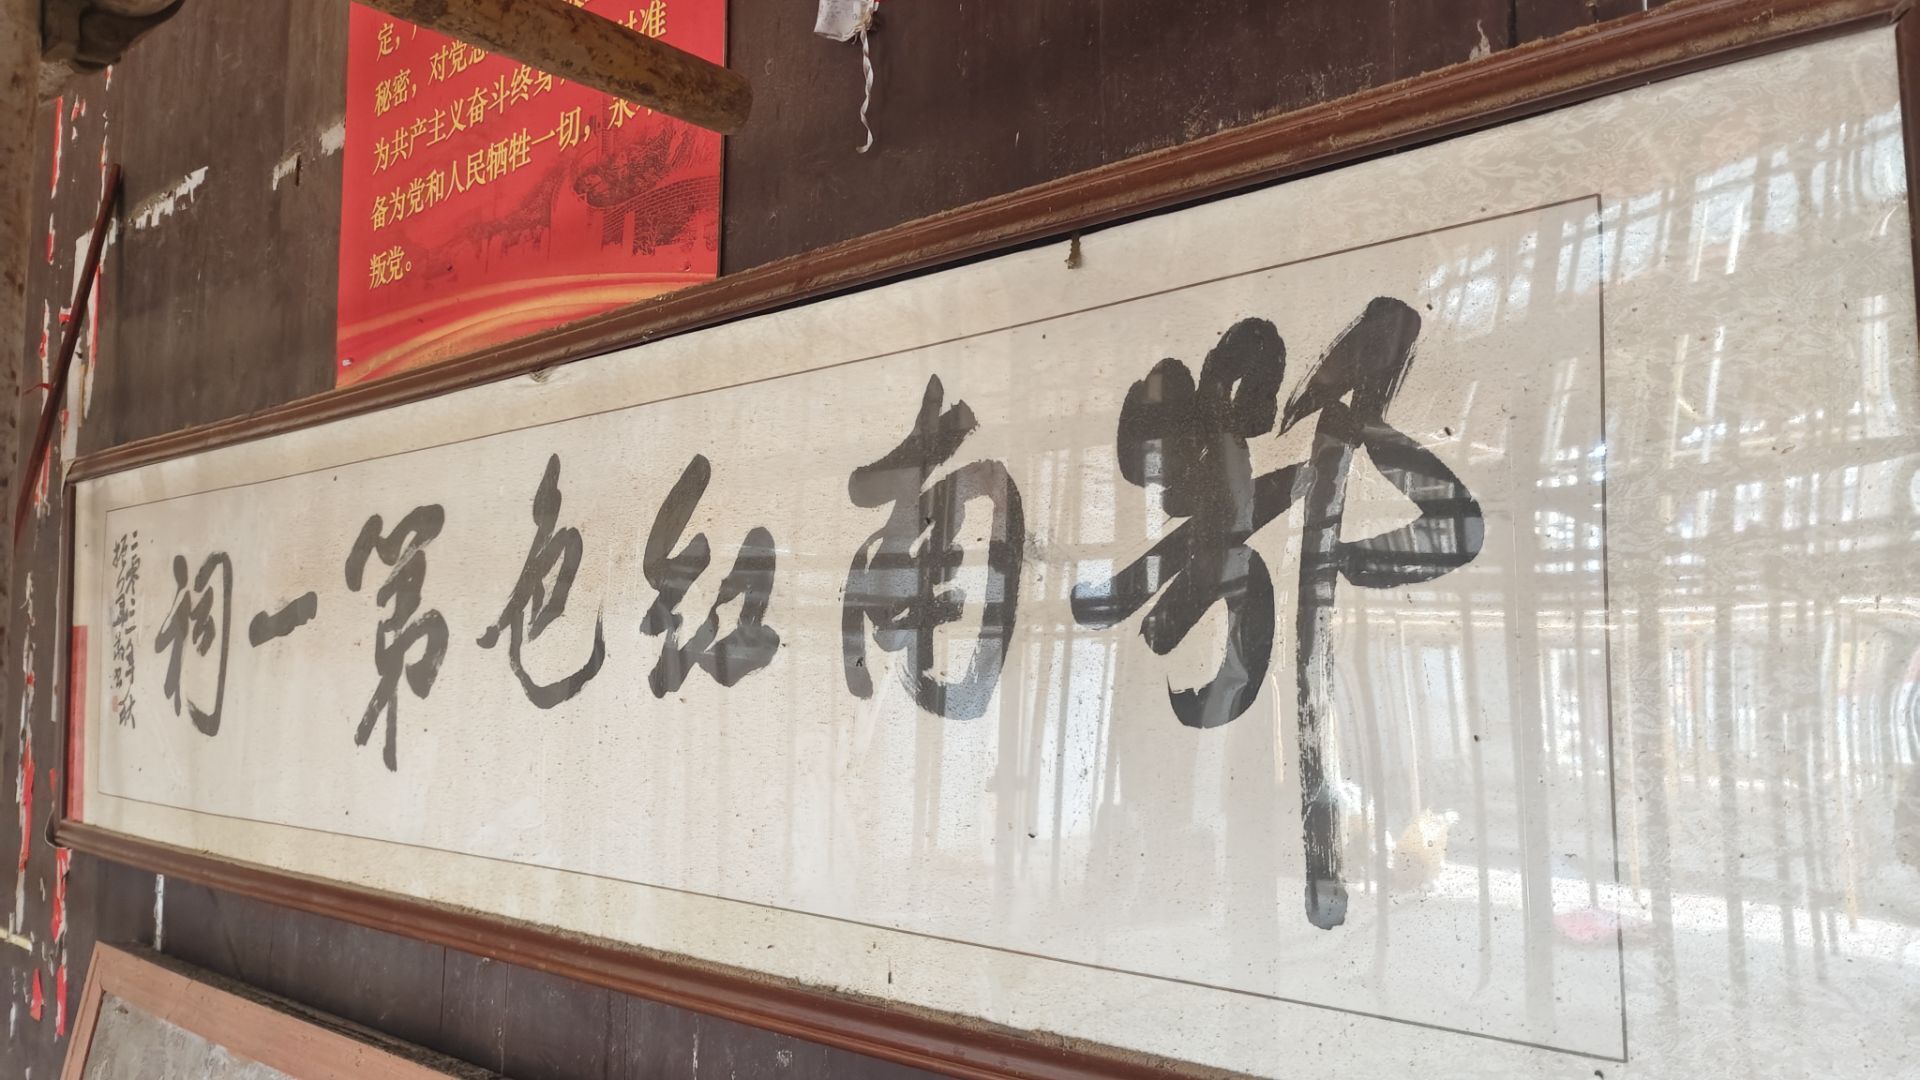 定，
秘密，对党忠
为共产主义奋斗终身，
备为党和人民牺牲一切，永
叛党。
鄂南红色第一祠
二零二一年秋